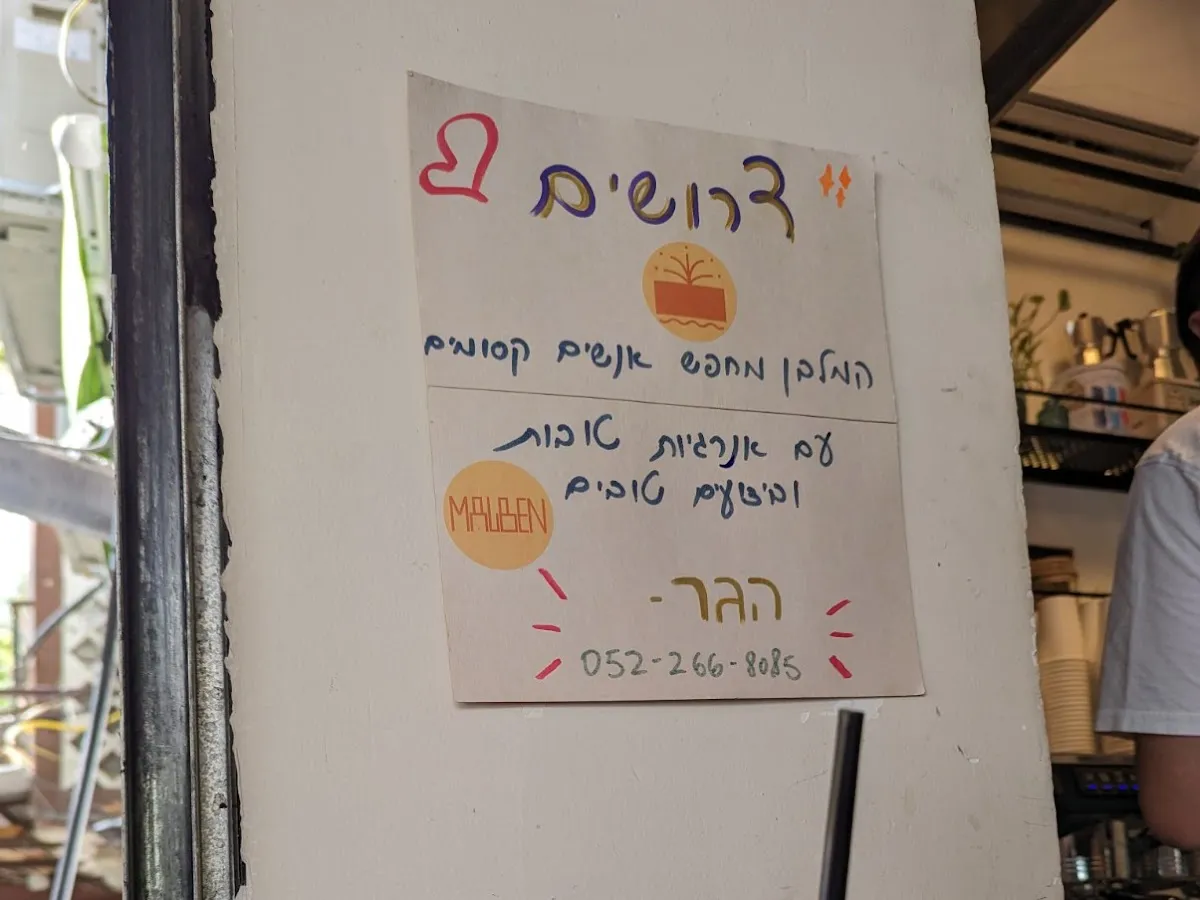 דרושים
המלבן מחפש אנשים קסומים
עם אנרגיות טובות
וביצועים טובים
MALBEN
הגר-
052-266-8085